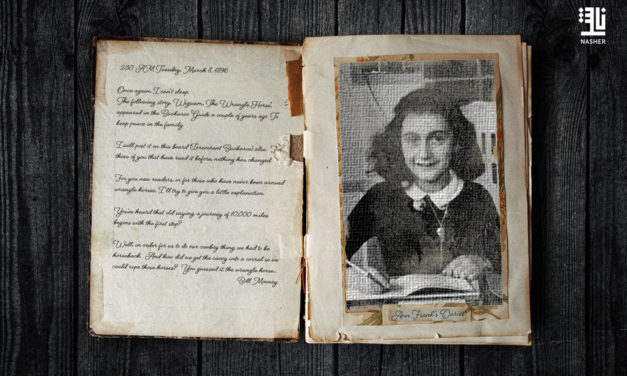 2:30 AM Tuesday, March 8,
Once again, I can't sleep.
The following story, The Wrangle Horse,
appeared in the Buckaroo Guide a couple of years ago. To
keep peace in the family
I will post it on this board Buckaroo) also.
those of you that have read it before, nothing has changed
For you new readers, or for those who have never been around
wrangle horses, I'll try to give you a little explanation.
You've heard that old saying, a journey of 10,000 miles
begins with the first step?
Well, in order for us to do our cowboy thing, we had to be
horseback. And how did we get the into a corral so we
could rope those horses? You guessed it, the wrangle horse...
Bill
Ann Frank's
ناشر
NASHER